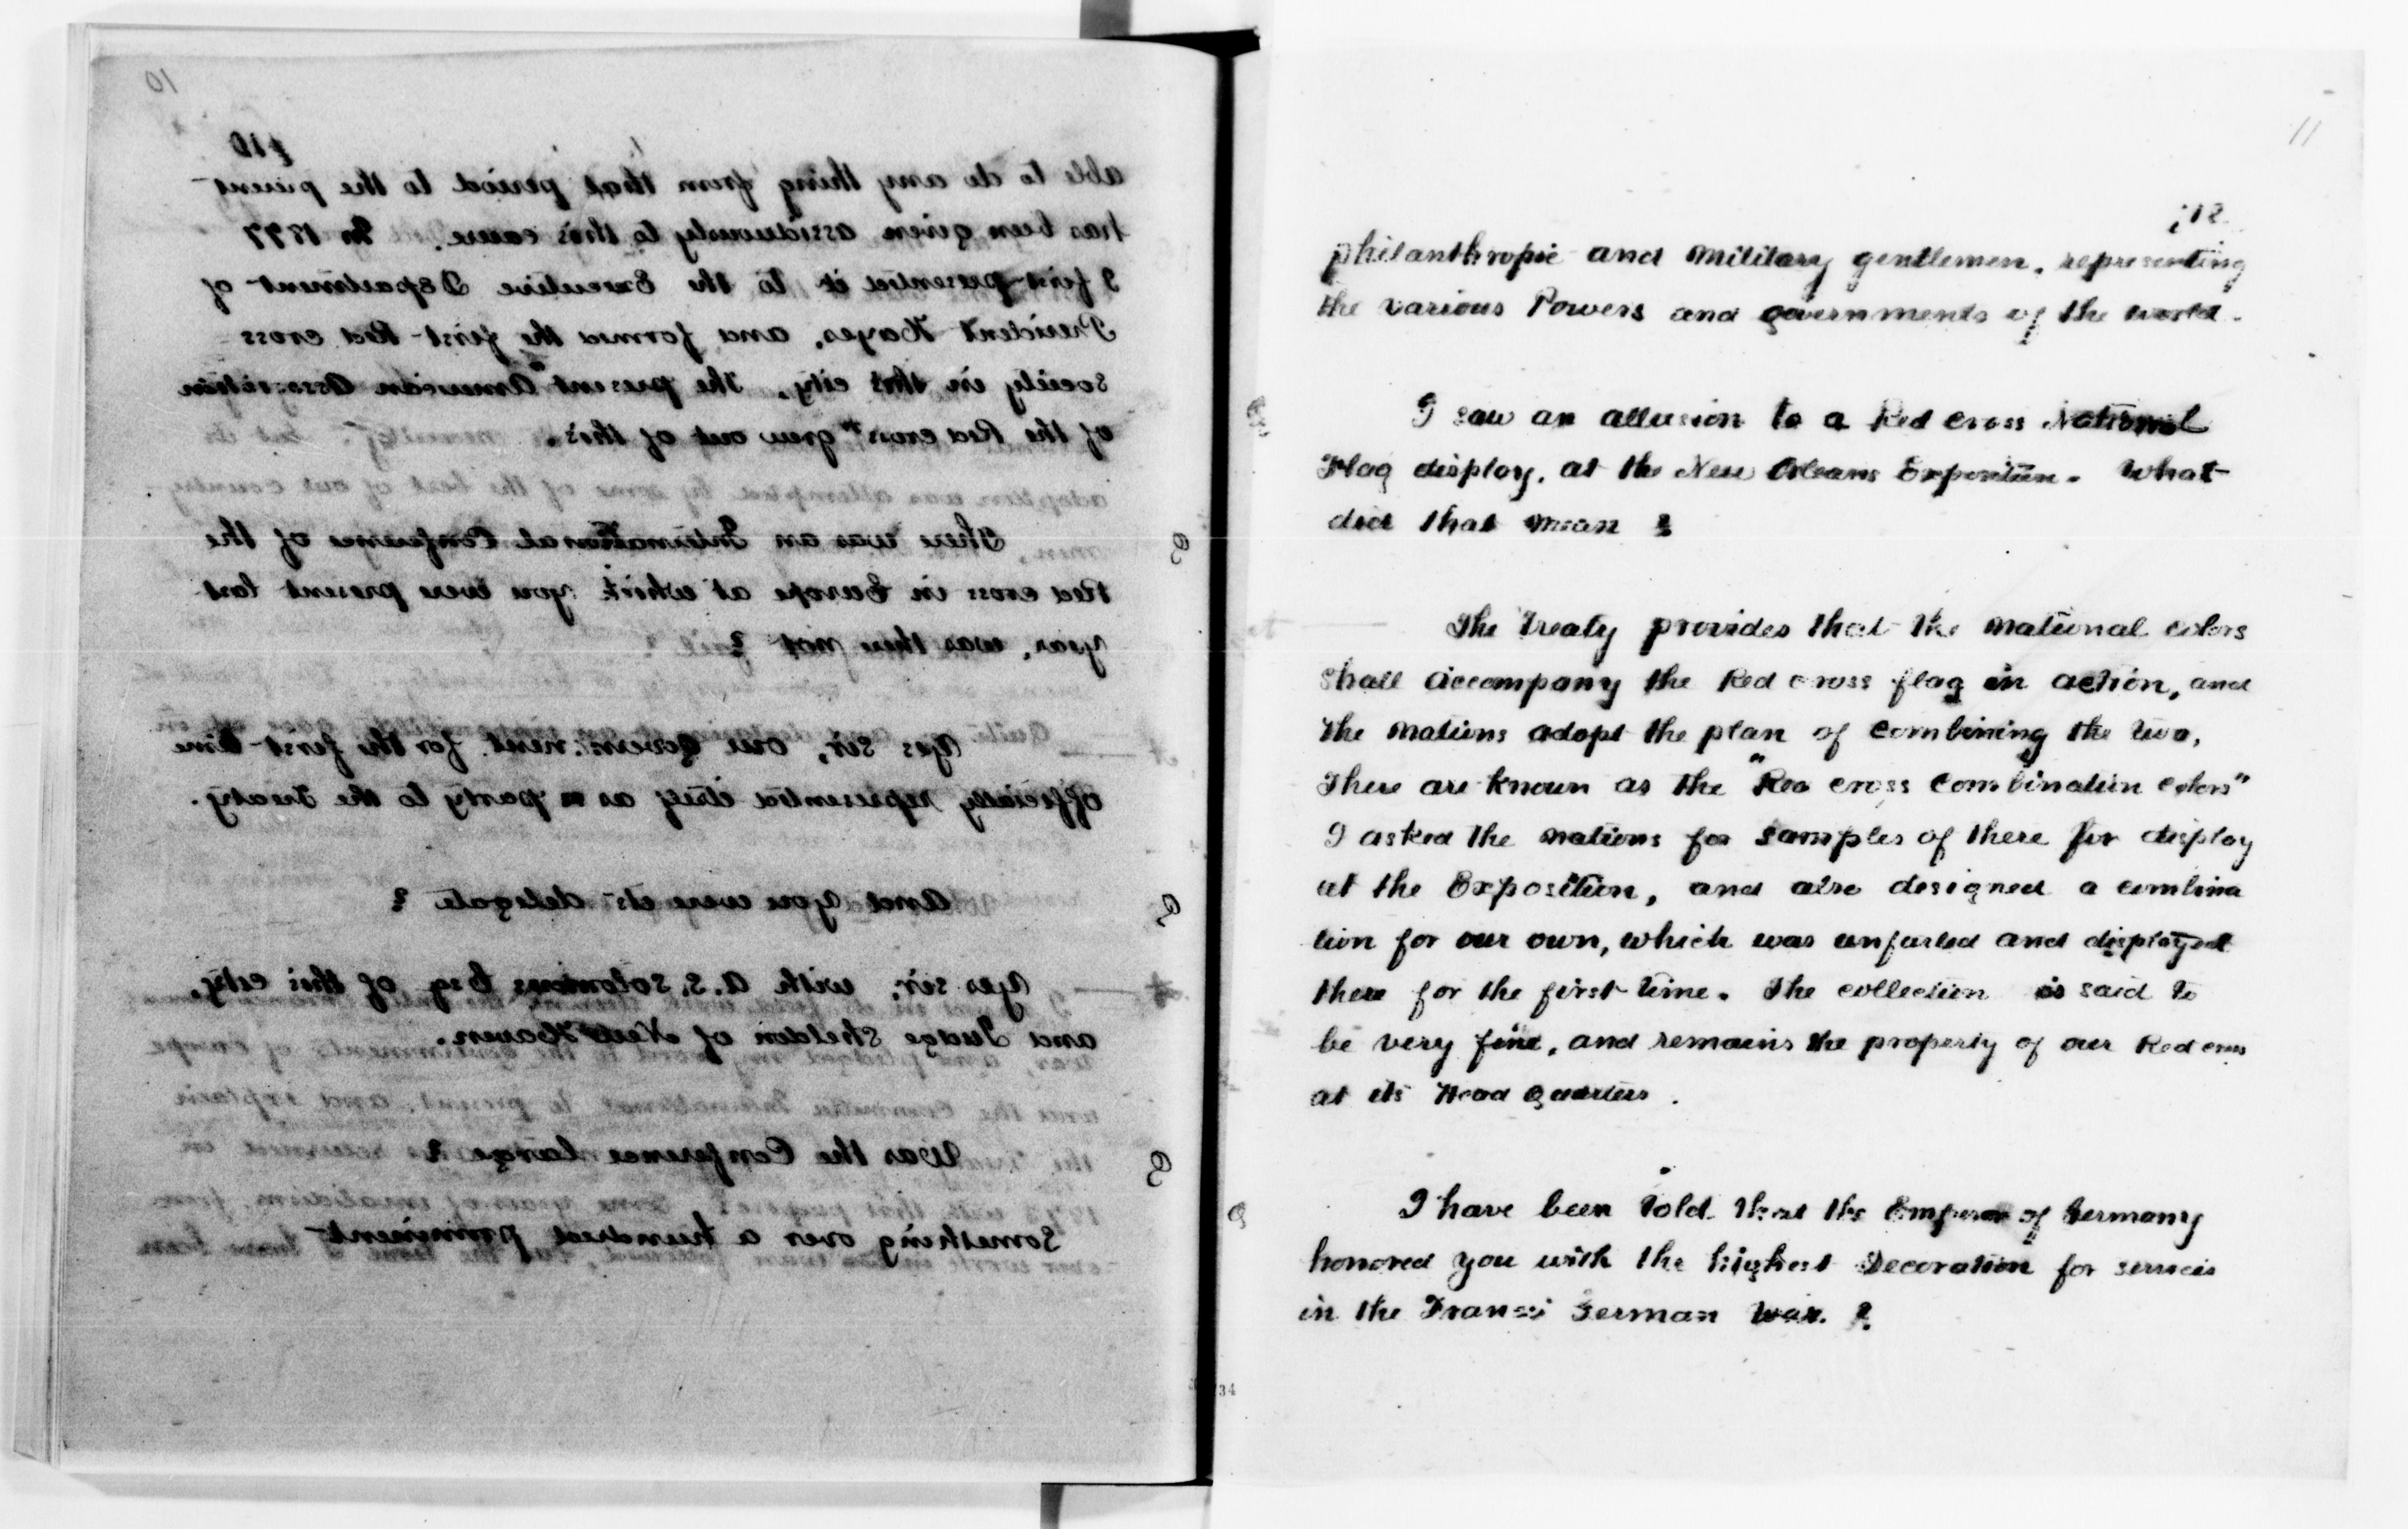 10
able to do any thing from that period to the present
has been given assiduously to this cause. In 1877
I first presented it to the Executive Department of
President Hayes, and formed the first Red cross
society in this city. The present "American Association
of the Red cross" grew out of this.
Q There was an International Conference of the
Red cross in Europe at which you were present last
year, was there not ?
Yes sir, our Government for the first time
officially represented itself as a party to the Treaty.
Q And you were its delegate ?
Yes sir, with A.S. Solomons Esq of this city,
and Judge Sheldon of New Haven.
Q Was the Conference large ?
Something over a hundred prominent
11
philanthropic and military gentlemen, representing
the various Powers and governments of the world.
I saw an allusion to a Red cross National
Flag display, at the New Orleans Exposition. What
did that mean ?
The Treaty provides that the national colors
shall accompany the Red cross flag in action, and
the nations adopt the plan of combining the two,
These are known as the "Red cross combination colors"
I asked the nations for samples of these for display
at the Exposition, and also designed a combina
tion for our own, which was unfurled and displayed
there for the first time. The collection is said to
be very fine, and remains the property of our Red cross
at its Head Quarters.
Q I have been told that the Emperor of Germany
honored you with the highest Decoration for services
in the Franco German War. ?
34